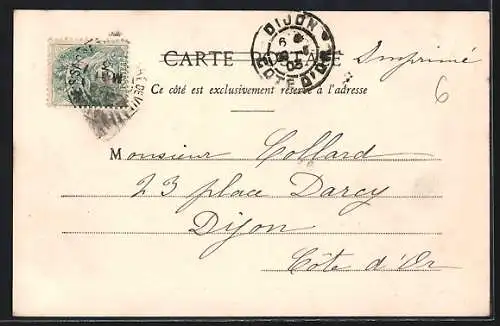 DIJON
CÔTE D'OR
CARTE POSTALE Imprimé
6
Ce côté est exclusivement réservé à l'adresse
Monsieur Collard
23 place Darcy
Dijon
Côte d'Or